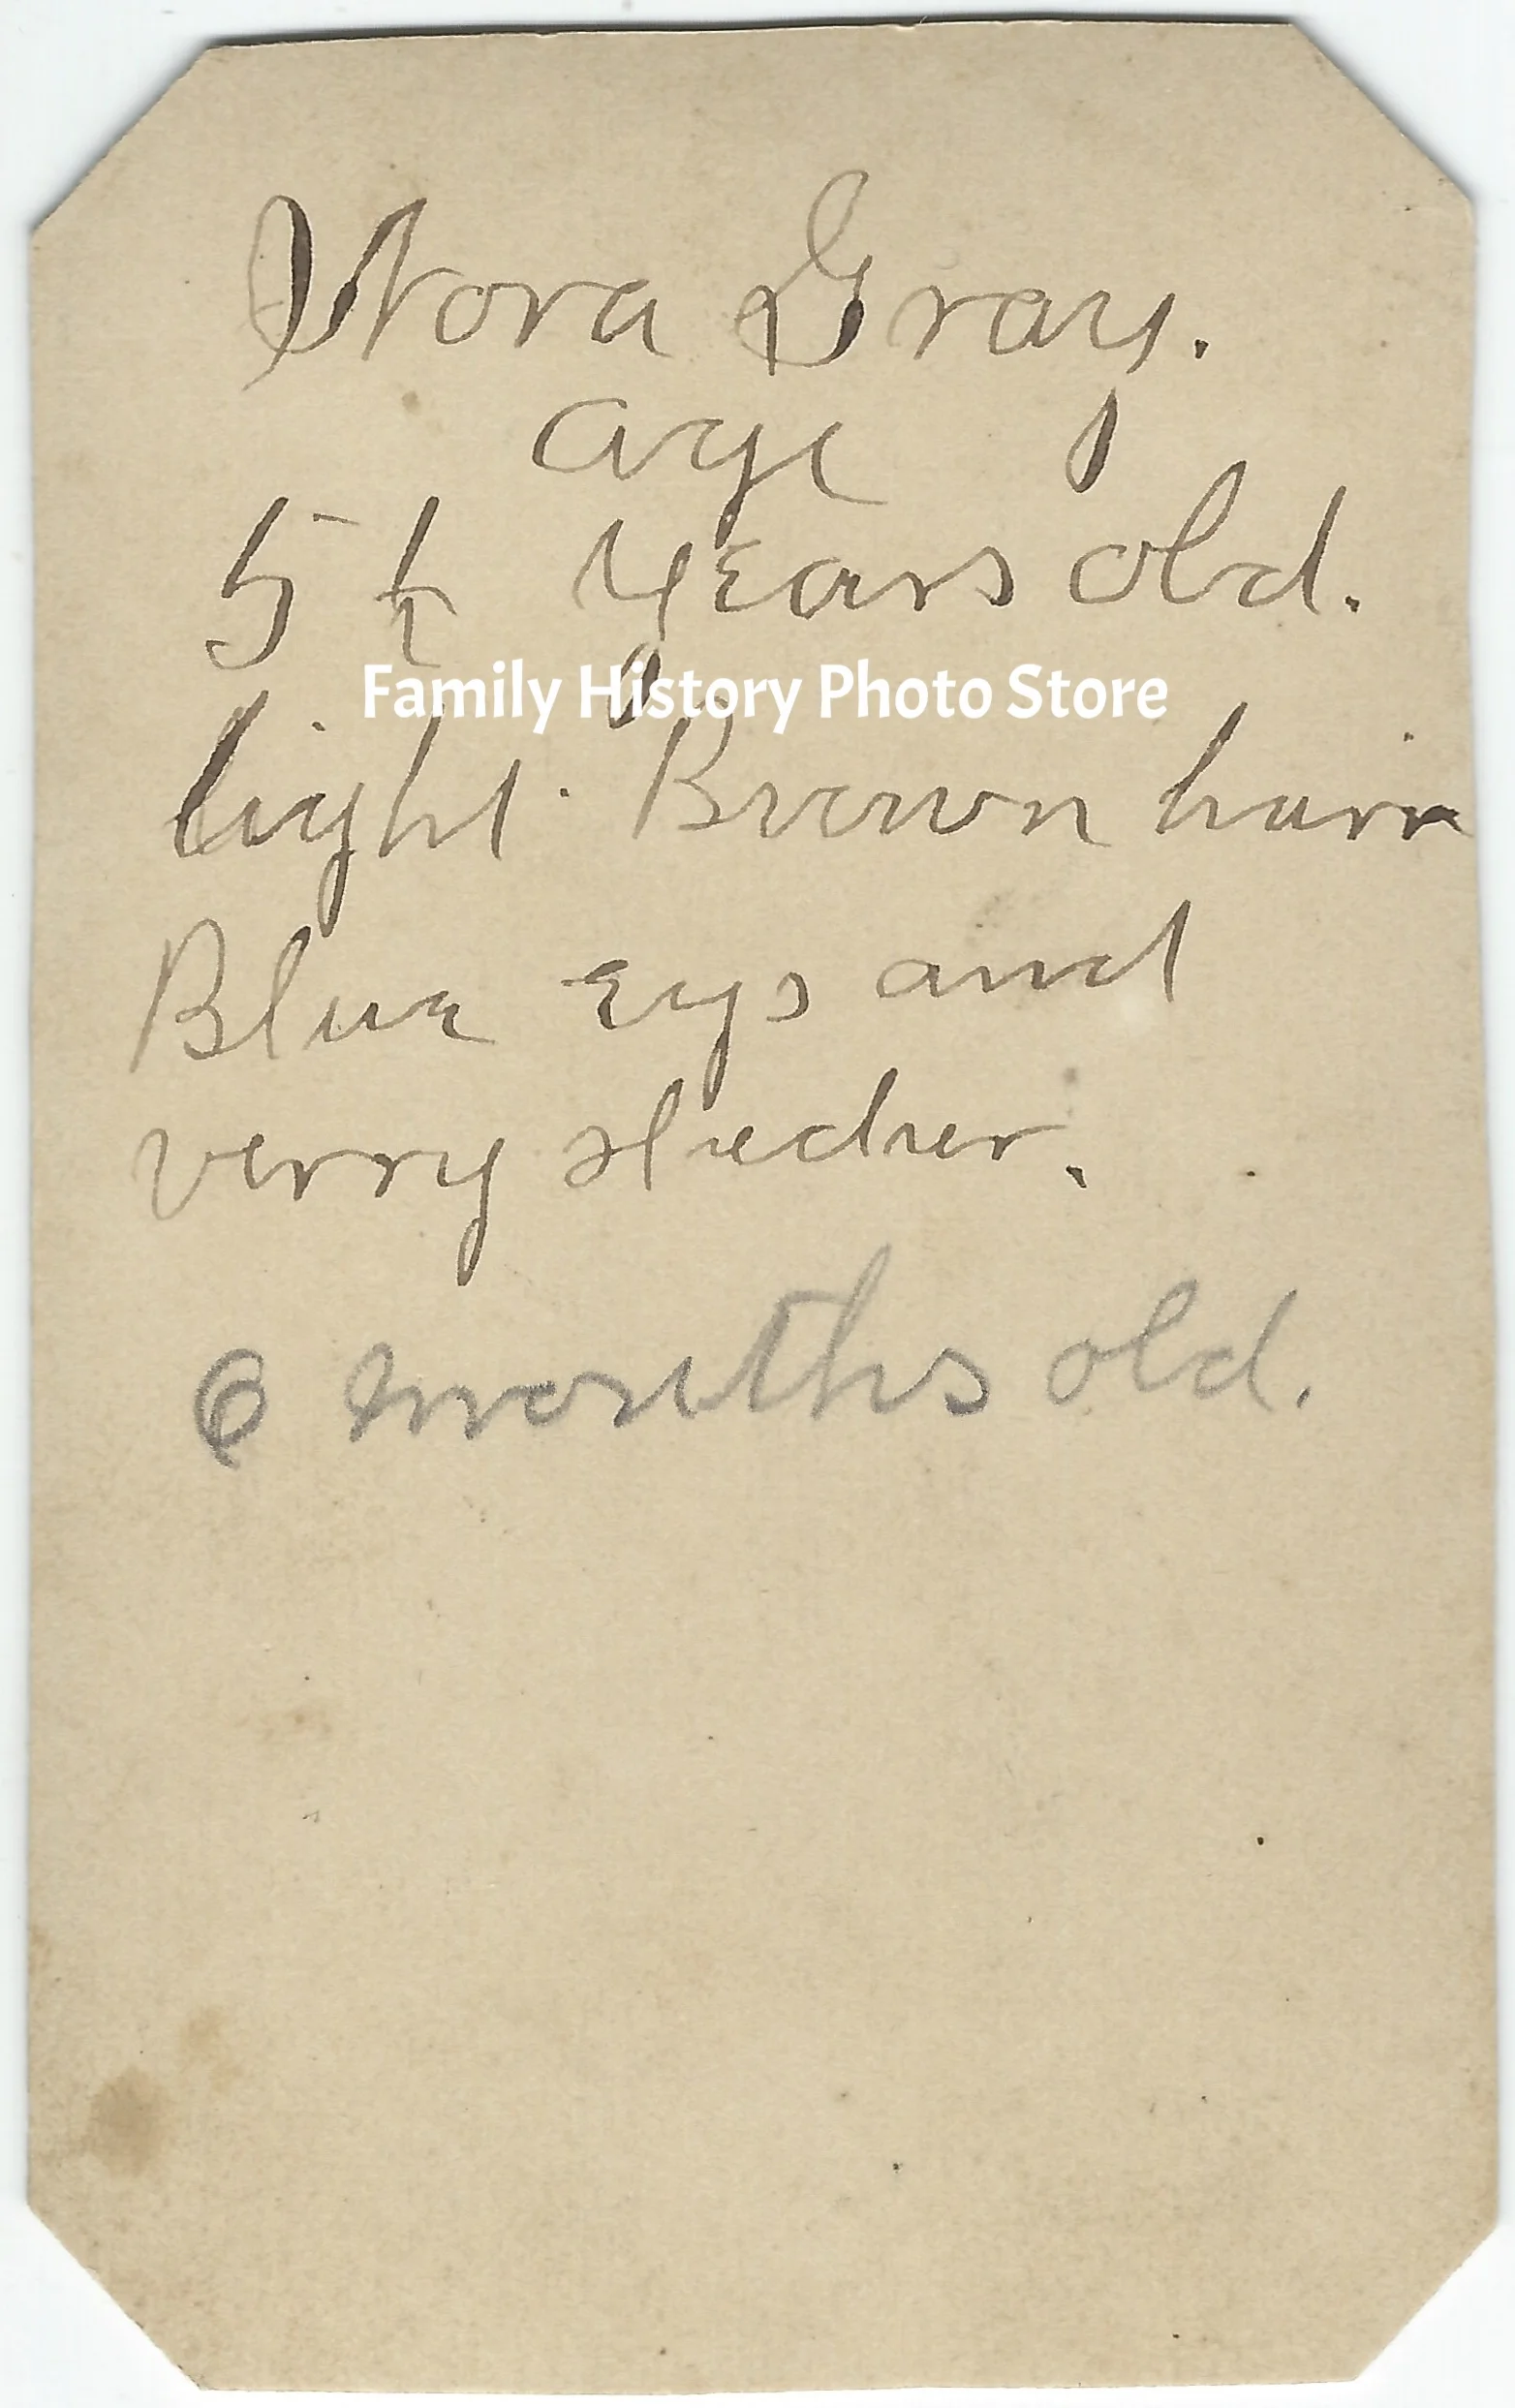 Nora Gray.
age
5 ½ years old.
Family History Photo Store
light Brown hair
Blue eys and
verry sleder.
6 months old.